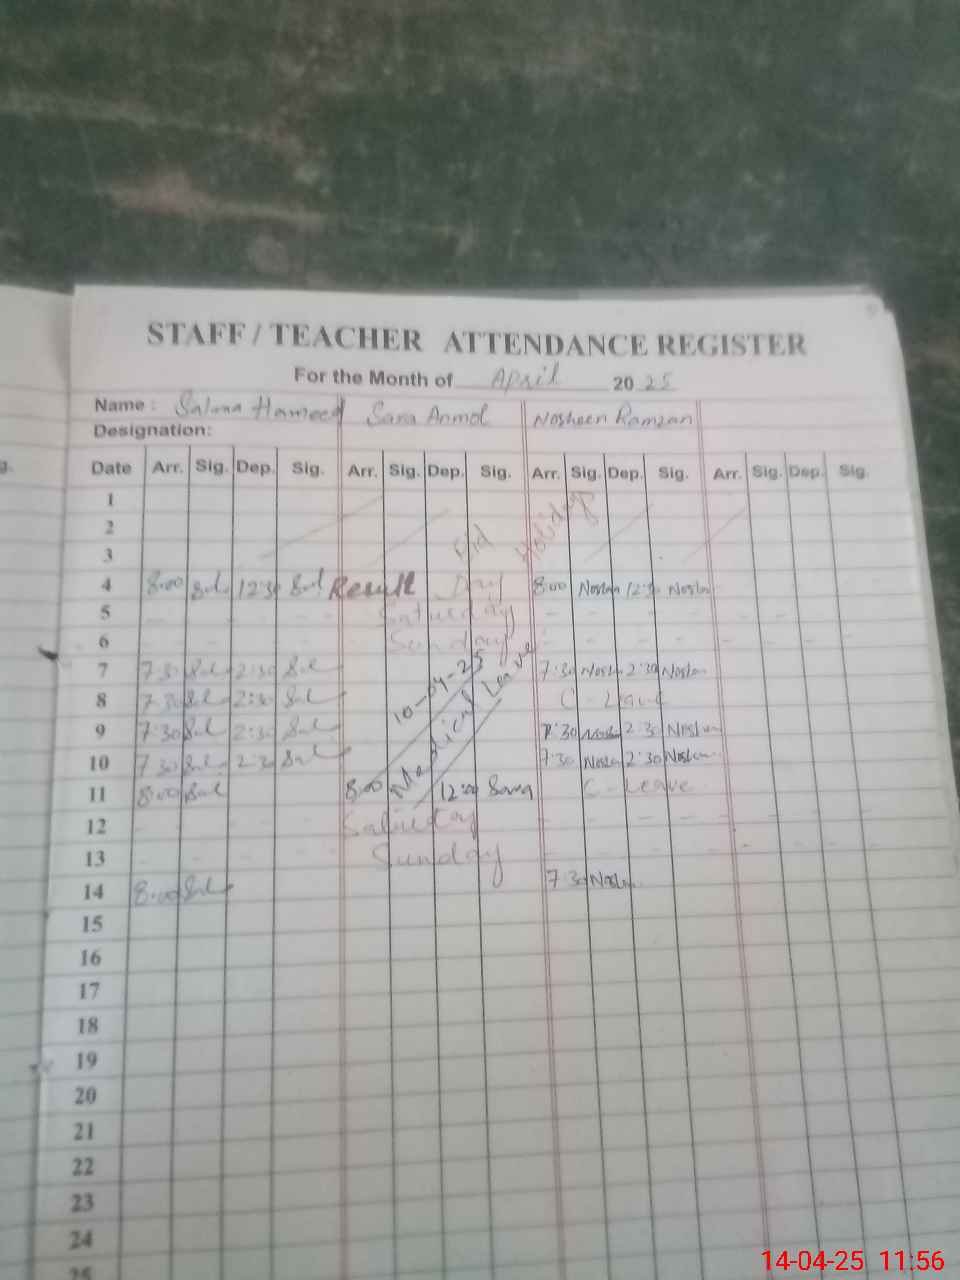 STAFF / TEACHER ATTENDANCE REGISTER
For the Month of April 2025
Name : Salma Hameed Sara Anmol Nosheen Ramzan
Designation:
g.
Date Arr. Sig. Dep. Sig. Arr. Sig. Dep. Sig. Arr. Sig. Dep. Sig. Arr. Sig. Dep. Sig.
1
2 Eid Holiday
3
4 8:00 Sal 12:30 Sal Result Day 8:00 Noshn 12:30 Noshn
5 Saturday
6 Sunday
7 7:30 Sal 2:30 Sal 7:30 Noshn 2:30 Noshn
8 7:30 Sal 2:30 Sal 10-04-25 Medical Leave C - Leave
9 7:30 Sal 2:30 Sal 7:30 Noshn 2:30 Noshn
10 7:30 Sal 2:30 Sal 7:30 Noshn 2:30 Noshn
11 8:00 Sal 8:00 12:00 Sara C - Leave
12 Saturday
13 Sunday
14 8:00 Sal 7:30 Noshn
15
16
17
18
19
20
21
22
23
24
25
14-04-25 11:56